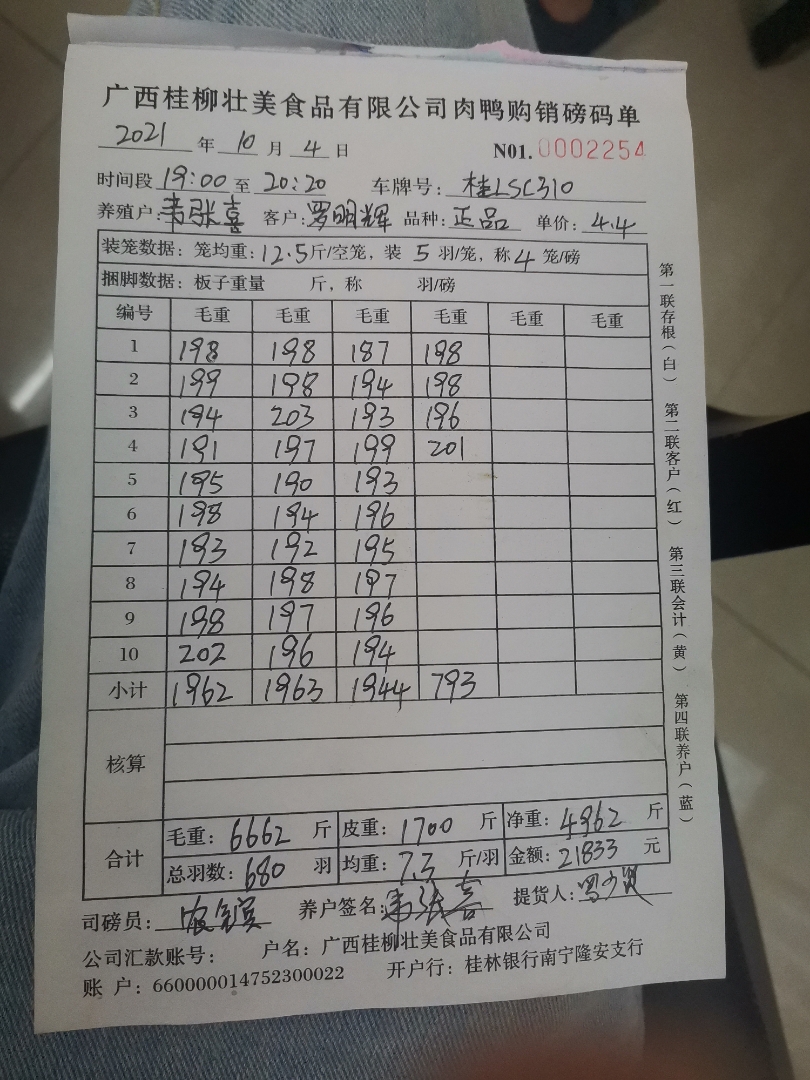 广西桂柳壮美食品有限公司肉鸭购销磅码单
2021 年 10 月 4 日 N01.0002254
时间段 19:00 至 20:20 车牌号: 桂LSC310
养殖户: 韦张喜 客户: 罗明辉 品种: 正品 单价: 4.4
装笼数据: 笼均重: 12.5斤/空笼, 装 5 羽/笼, 称 4 笼/磅
捆脚数据: 板子重量 斤, 称 羽/磅
编号 毛重 毛重 毛重 毛重 毛重 毛重
1 198 198 187 198
2 199 198 194 198
3 194 203 193 196
4 191 197 199 201
5 195 190 193
6 198 194 196
7 193 192 195
8 194 198 197
9 198 197 196
10 202 196 194
小计 1962 1963 1944 793
核算
合计
毛重: 6662 斤 皮重: 1700 斤 净重: 4962 斤
总羽数: 680 羽 均重: 7.3 斤/羽 金额: 21833 元
司磅员: 养户签名: 韦张喜 提货人:
公司汇款账号: 户名: 广西桂柳壮美食品有限公司
账 户: 660000014752300022 开户行: 桂林银行南宁隆安支行
第一联存根(白) 第二联客户(红) 第三联会计(黄) 第四联养户(蓝)